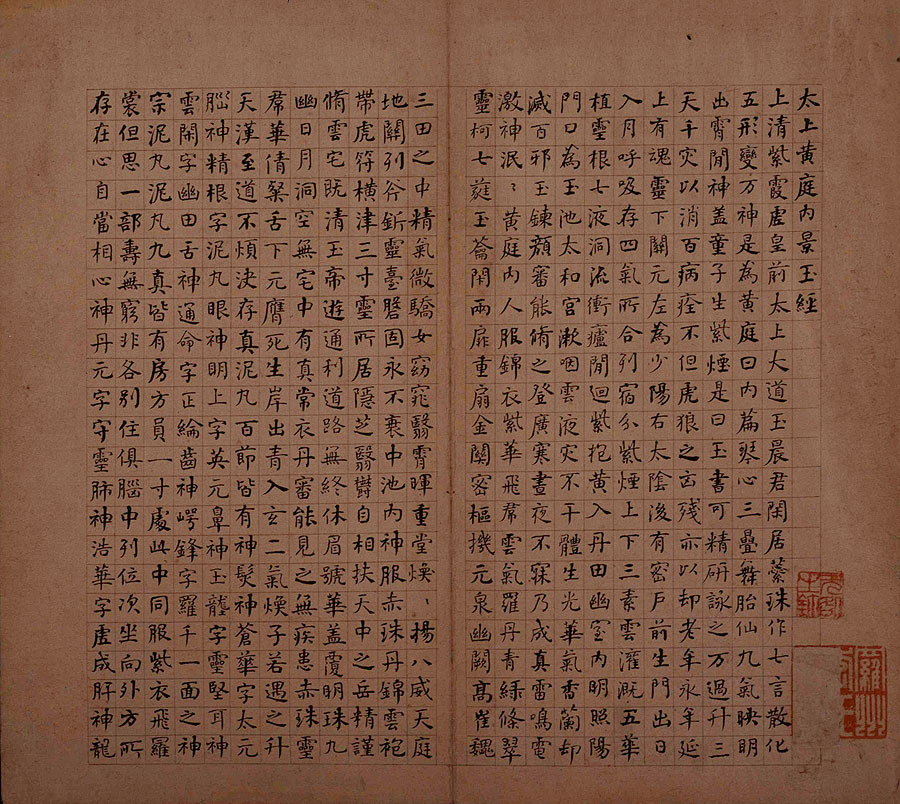 太上黄庭内景玉經
上清紫霞虛皇前太上大道玉晨君閑居蘂珠作七言散化
五形變万神是為黄庭曰内篇琴心三疊舞胎仙九氣映明
出霄閒神盖童子生紫煙是曰玉書可精研詠之万過升三
天千灾以消百病痊不但虎狼之㐫殘亦以却老年永年延
上有魂靈下關元左為少陽右太陰後有密戶前生門出日
入月呼吸存四氣所合列宿分紫煙上下三素雲灌溉五華
植靈根七液洞流衝廬閒迴紫抱黄入丹田幽室内明照陽
門口為玉池太和宫漱咽雲液灾不干體生光華氣香蘭却
滅百邪玉鍊顔審能脩之登廣寒晝夜不寐乃成真雷鳴電
激神泯〻黄庭内人服錦衣紫華飛帬雲氣羅丹青緑條翠
靈柯七蕤玉籥閇兩扉重扇金關密樞機元泉幽闕髙崔巍
三田之中精氣微驕女窈窕翳霄暉重堂煥〻揚八威天庭
地關列斧釿靈臺磐固永不衰中池内神服赤珠丹錦雲袍
帶虎符横津三寸靈所居隱芝翳鬱自相扶天中之岳精謹
脩雲宅既清玉帝遊通利道路無終休眉號華盖覆明珠九
幽日月洞空無宅中有真常衣丹審能見之無疾患赤珠靈
帬華倩粲舌下元膺死生岸出青入玄二氣煥子若遇之升
天漢至道不煩決存真泥丸百節皆有神髮神蒼華字太元
腦神精根字泥丸眼神明上字英元鼻神玉壟字靈堅耳神
雲閑字幽田舌神通命字正綸齒神崿鋒字羅千一面之神
宗泥丸泥丸九真皆有房方員一寸處此中同服紫衣飛羅
裳但思一部壽無窮非各別住俱腦中列位次坐向外方所
存在心自當相心神丹元字守靈肺神浩華字虛成肝神龍